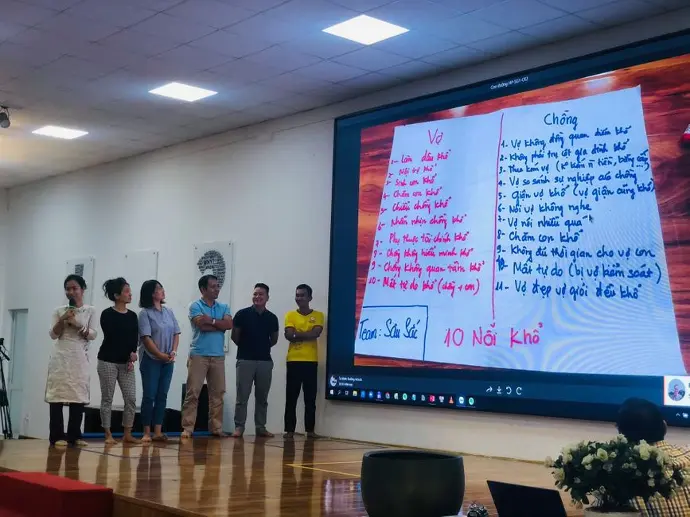 Vợ
1- Làm dâu khổ
2- Nội trợ khổ
3- Sinh con khổ
4- Chăm con khổ
5- Chiều chồng khổ
6- Nhẫn nhịn chồng khổ
7- Phụ thuộc tài chính khổ
8- Chồng không hiểu mình khổ
9- Chồng không quan tâm khổ
10- Mất tự do khổ (chồng + con)
Team: Sâu Sắc
Chồng
1- Vợ không đồng quan điểm khổ
2- Không phải trụ cột gia đình khổ
3- Theo kèm vợ
4- Vợ so sánh sự nghiệp các chồng
5- Giận vợ khổ (vợ giận cũng khổ)
6- Nói vợ không nghe
7- Vợ nói nhiều quá
8- Chăm con khổ
9- Không đủ thời gian cho vợ con
10- Mất tự do (bị vợ kiểm soát)
11- Vợ đẹp vợ giỏi đều khổ
10 Nỗi Khổ